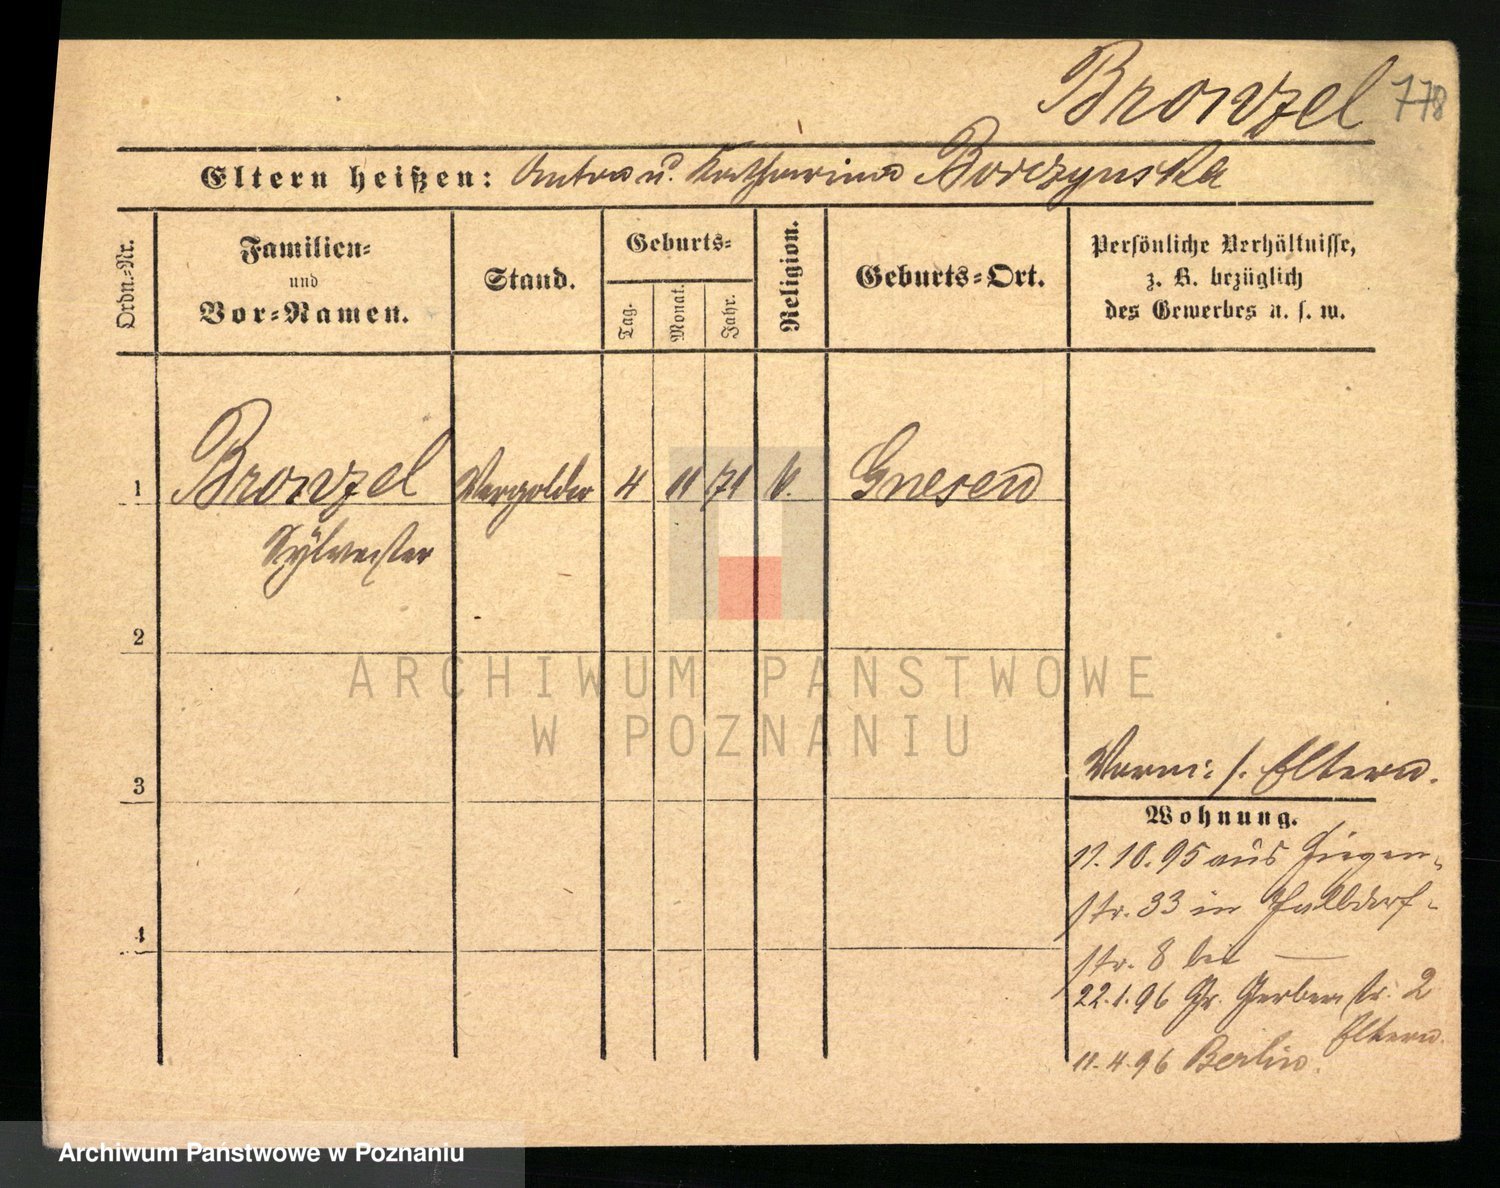 Bronzel 778
Eltern heißen: Anton u. Katharina Borczynska
Ordn.-Nr.
Familien-
und
Vor-Namen.
Stand.
Geburts-
Tag.
Monat.
Jahr.
Religion.
Geburts-Ort.
Persönliche Verhältnisse,
z. B. bezüglich
des Gewerbes u. s. w.
1 Bronzel Vergolder 4 11 71 k. Gnesen
Sylvester
2
ARCHIWUM PAŃSTWOWE
W POZNANIU
3
4
Vorm: s. Eltern.
Wohnung.
11.10.95 aus
str. 33 in Halbdorf-
str. 8 bei —
22.1.96 Gr. Gerberstr. 2
Eltern.
11.4.96 Berlin.
Archiwum Państwowe w Poznaniu